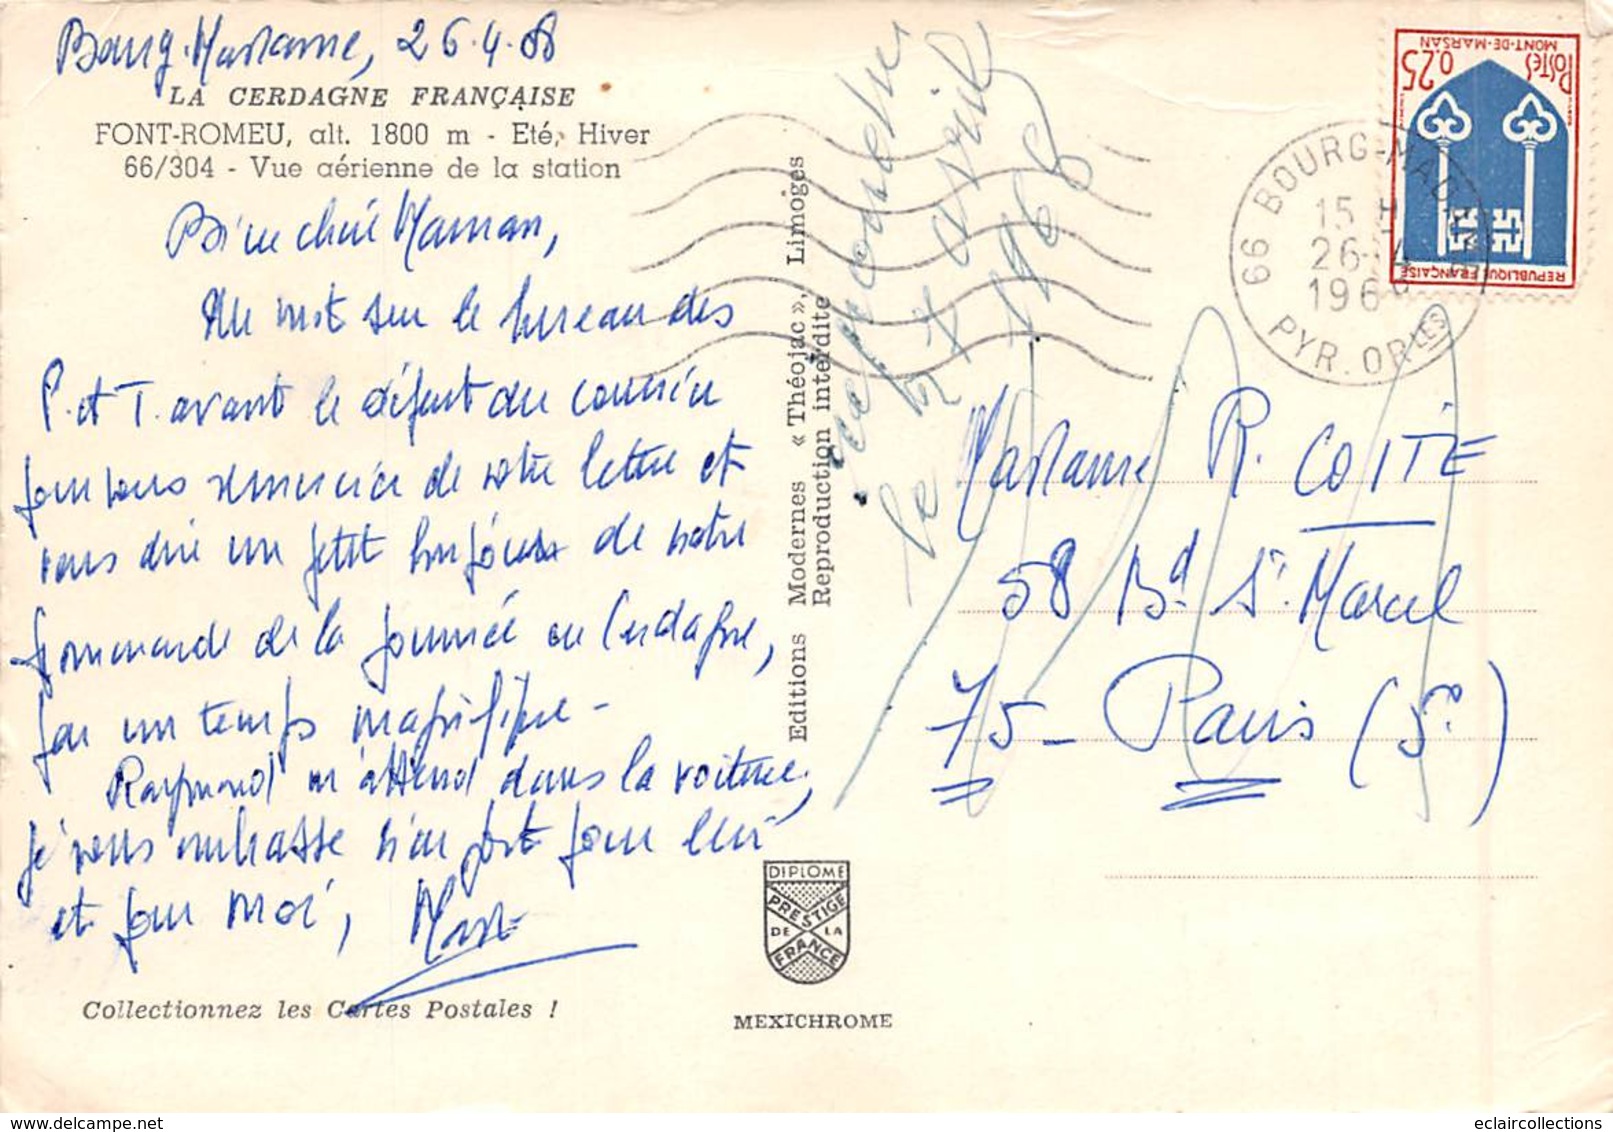 Bourg-Madame, 26.4.68
LA CERDAGNE FRANÇAISE
FONT-ROMEU, alt. 1800 m - Eté, Hiver
66/304 - Vue aérienne de la station
Bien chère Maman,
Un mot sur le bureau des
P. et T. avant le départ du courrier
pour vous remercier de votre lettre et
vous dire un petit bonjour de notre
promenade de la journée en Cerdagne,
par un temps magnifique -
Raymond m'attend dans la voiture,
je vous embrasse bien fort pour lui
et pour moi,
Collectionnez les Cartes Postales !
Editions Modernes « Théojac », Limoges
Reproduction interdite
le 27 avril
DIPLOME
PRESTIGE
DE LA
FRANCE
MEXICHROME
POSTES
0,25
MONT-DE-MARSAN
REPUBLIQUE FRANÇAISE
66 BOURG-MADAME
15 H
26-4
196
PYR. ORLES
Madame R. COSTE
58 Bd St. Marcel
75 - Paris (5e)
eclaircollections